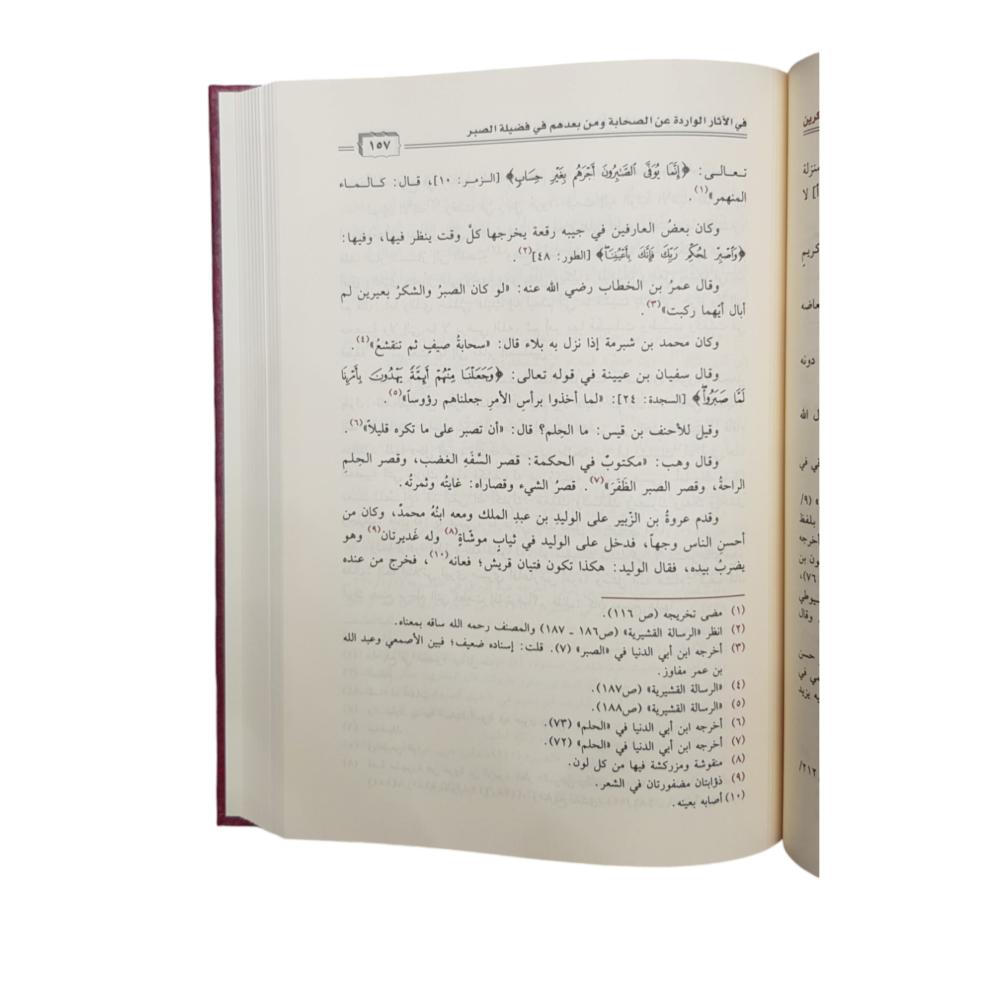 في الآثار الواردة عن الصحابة ومن بعدهم في فضيلة الصبر
١٥٧
تعالى: ﴿إِنَّمَا يُوَفَّى ٱلصَّٰبِرُونَ أَجْرَهُم بِغَيْرِ حِسَابٍ﴾ [الزمر: ١٠]، قال: كالماء
المنهمر»(١).
وكان بعضُ العارفين في جيبه رقعة يخرجها كلَّ وقت ينظر فيها، وفيها:
﴿وَٱصْبِرْ لِحُكْمِ رَبِّكَ فَإِنَّكَ بِأَعْيُنِنَا﴾ [الطور: ٤٨](٢).
وقال عمرُ بن الخطاب رضي الله عنه: «لو كان الصبرُ والشكرُ بعيرين لم
أبال أيّهما ركبت»(٣).
وكان محمد بن شبرمة إذا نزل به بلاء قال: «سحابةُ صيفٍ ثم تنقشعُ»(٤).
وقال سفيان بن عيينة في قوله تعالى: ﴿وَجَعَلْنَا مِنْهُمْ أَئِمَّةً يَهْدُونَ بِأَمْرِنَا
لَمَّا صَبَرُوا۟﴾ [السجدة: ٢٤]: «لما أخذوا برأسِ الأمرِ جعلناهم رؤوساً»(٥).
وقيل للأحنف بن قيس: ما الحِلم؟ قال: «أن تصبر على ما تكره قليلاً»(٦).
وقال وهب: «مكتوبٌ في الحكمة: قصر السَّفَهِ الغضب، وقصر الحِلمِ
الراحةُ، وقصر الصبر الظَفَرَ»(٧). قصرُ الشيء وقصاراه: غايتُه وثمرتُه.
وقدم عروةُ بن الزّبير على الوليدِ بن عبدِ الملك ومعه ابنُهُ محمدٌ، وكان من
أحسنِ الناس وجهاً، فدخل على الوليد في ثيابٍ موشّاةٍ(٨) وله غَديرتان(٩) وهو
يضربُ بيده، فقال الوليد: هكذا تكون فتيان قريش؛ فعانه(١٠)، فخرج من عنده
(١) مضى تخريجه (ص ١١٦).
(٢) انظر «الرسالة القشيرية» (ص١٨٦ - ١٨٧) والمصنف رحمه الله ساقه بمعناه.
(٣) أخرجه ابن أبي الدنيا في «الصبر» (٧). قلت: إسناده ضعيف؛ فبين الأصمعي وعبد الله
بن عمر مفاوز.
(٤) «الرسالة القشيرية» (ص١٨٧).
(٥) «الرسالة القشيرية» (ص١٨٨).
(٦) أخرجه ابن أبي الدنيا في «الحلم» (٧٣).
(٧) أخرجه ابن أبي الدنيا في «الحلم» (٧٢).
(٨) منقوشة ومزركشة فيها من كل لون.
(٩) ذؤابتان مضفورتان في الشعر.
(١٠) أصابه بعينه.